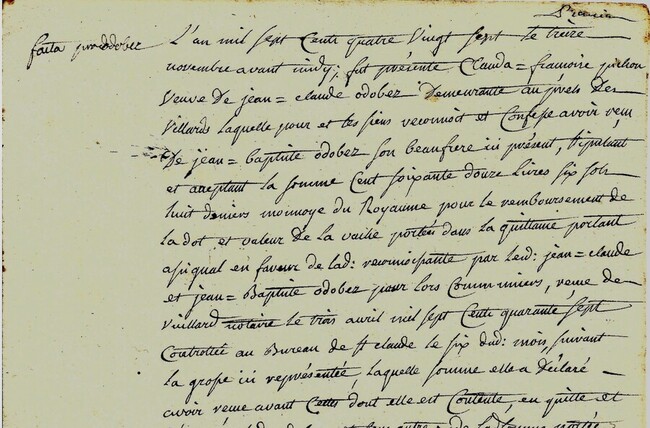 faita pr odobez
L'an mil sept Cent quatre Vingt sept Le treize
novembre avant midy; fut présente Clauda = francoise
Veuve De jean = claude odobez Demeurante au prels Des
Villards Laquelle pour et les siens reconnoit et Confesse avoir reçu
De jean = baptiste odobez son beaufrere ici présent, stipulant
et acceptant La somme Cent soixante douze Livres six sols
huit deniers monnoye du Royaume pour Le remboursement de
La dot et valeur De La vache portés dans La quittance portant
assignal en faveur de lad: reconnoissante par Led: jean = claude
et jean = Baptiste odobez pour Lors Communiers, reçue de
Vuillard notaire Le trois avril mil sept Cent quarante sept
Controllée au Bureau de st claude Le six dud: mois, suivant
La grosse ici représentée, Laquelle somme elle a Déclaré
avoir reçue avant Cettes dont elle est Contente, en quitte et